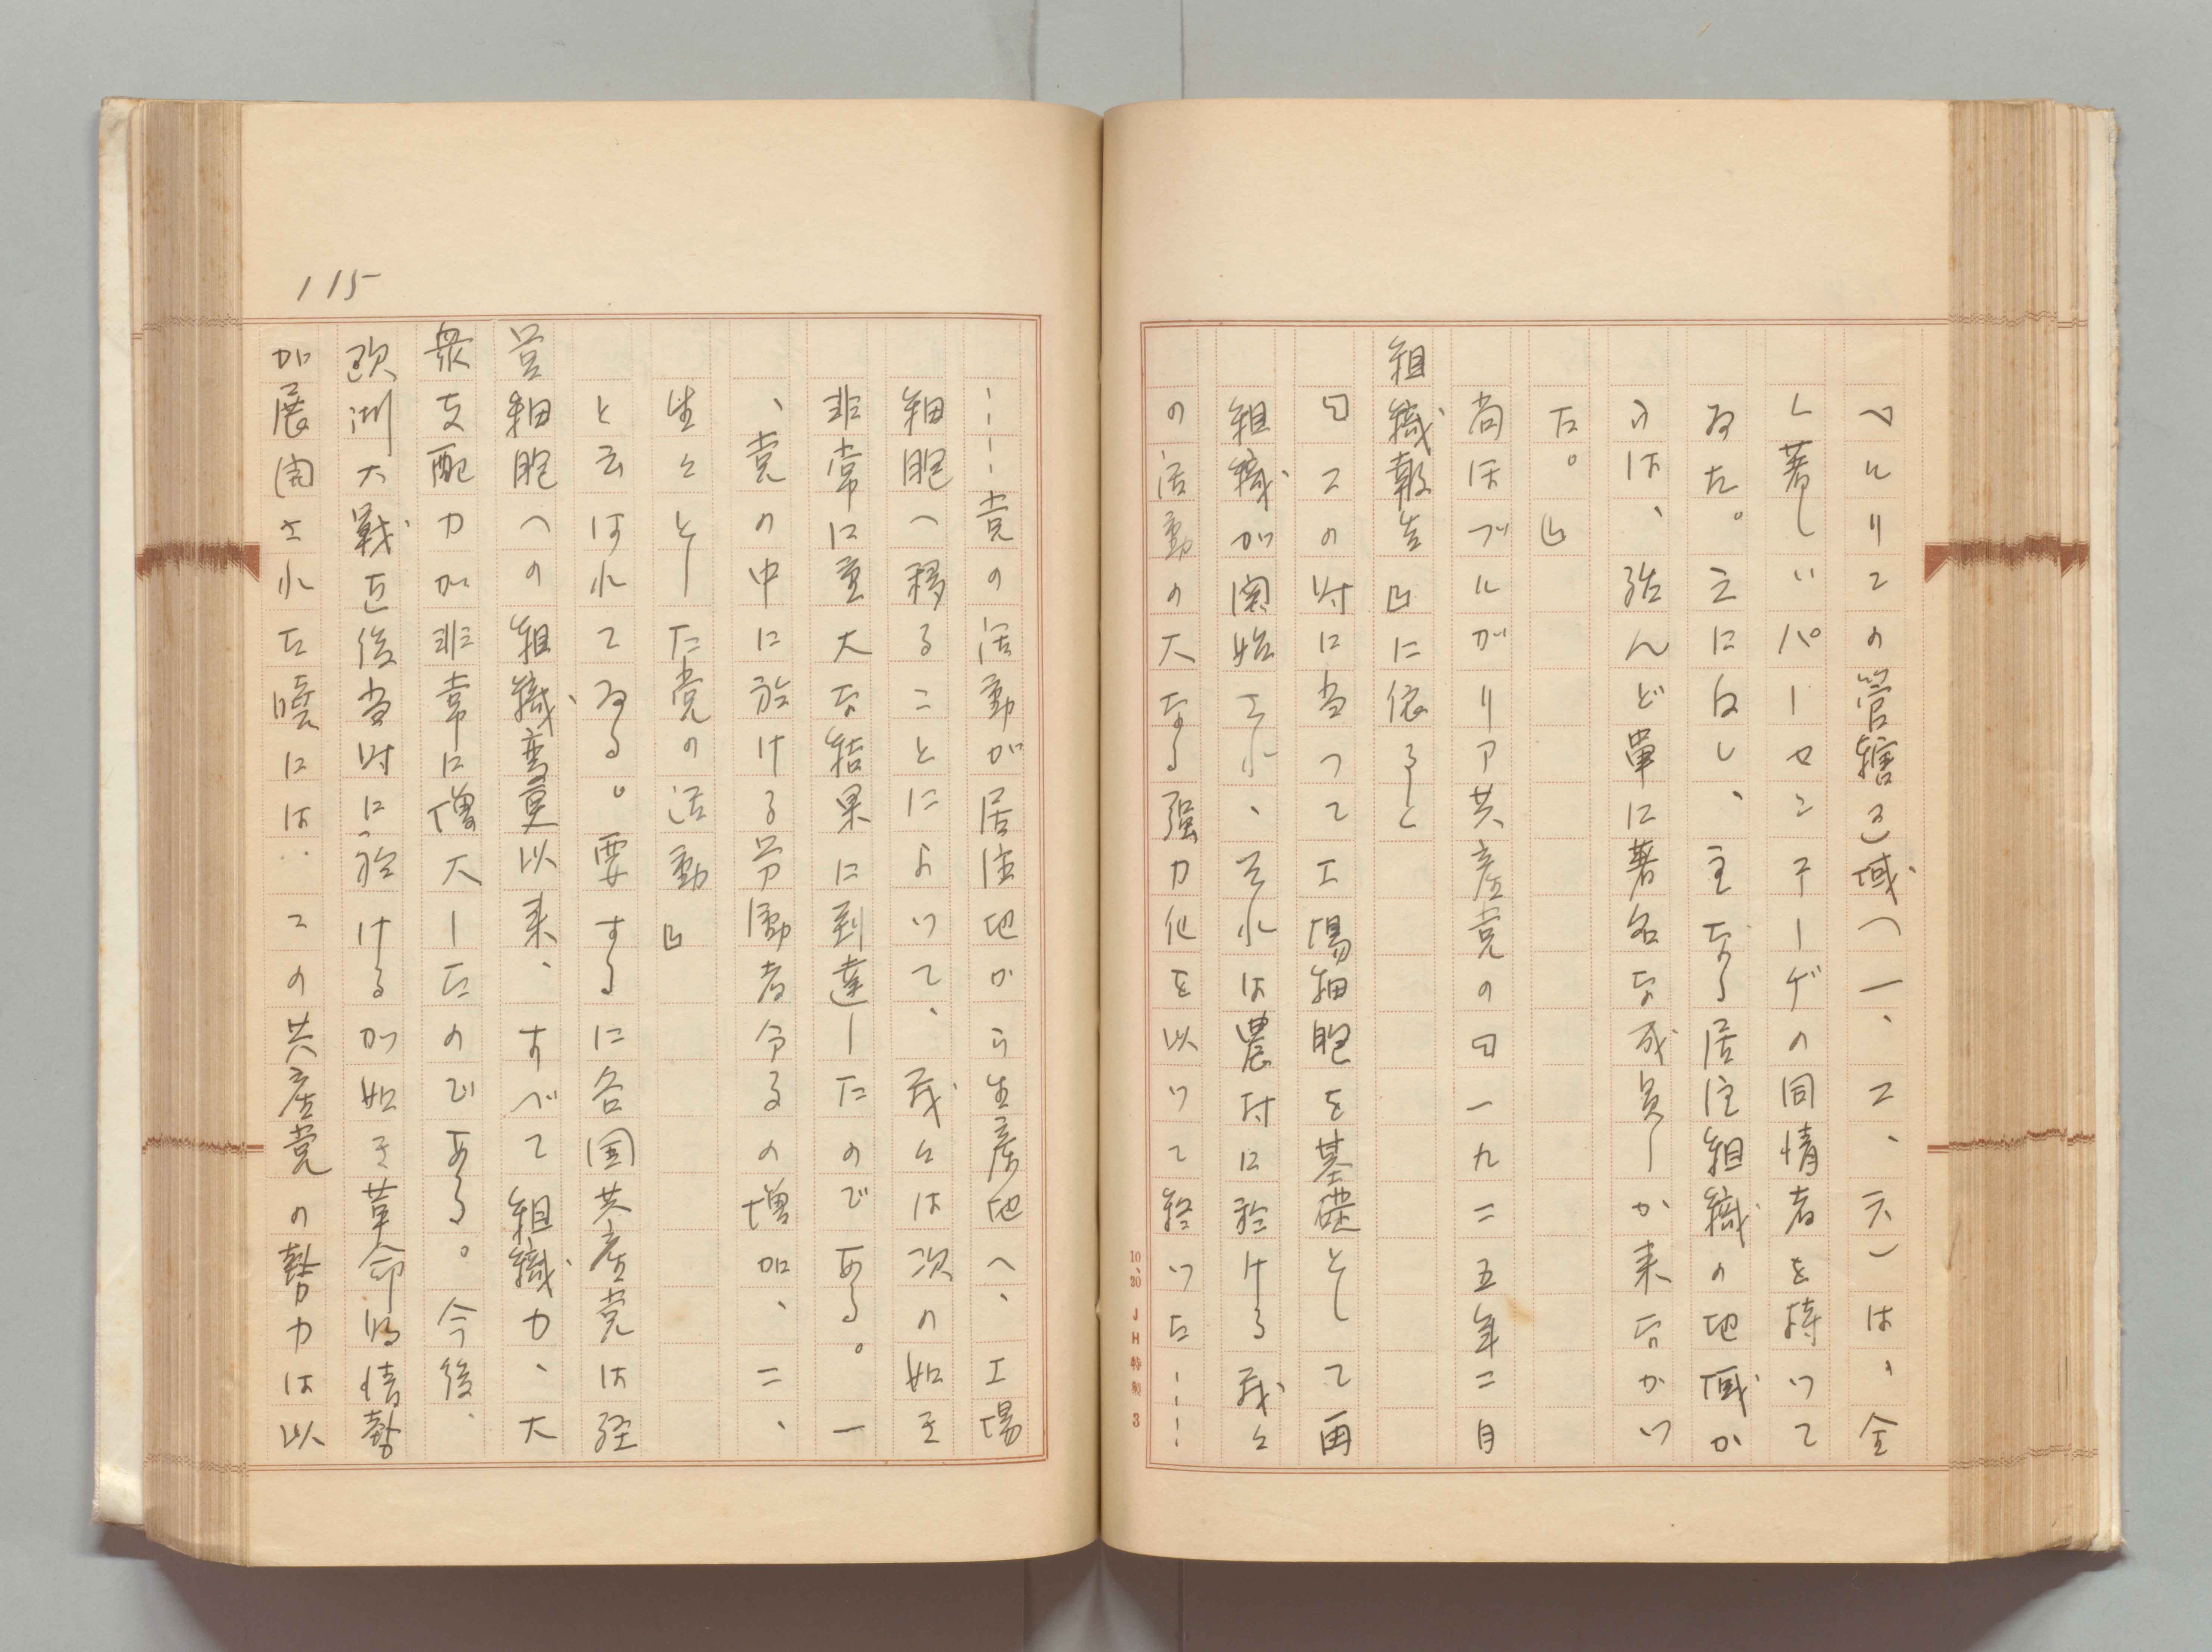 ベルリンの管轄区域へ一、二、六)は、全
く著しいパーセンテーヂの同情者を持つて
ゐた。之に反し、主なる居住組織の地域か
らは、殆んど單に著名な成員しか来なかつ
た。』
尚ほブルガリア共産党の『一九二五年二月
組織報告』に依ると
『この時に当つて工場細胞を基礎として再
組織が開始され、それは農村に於ける我々
の活動の大なる强力化を以つて終つた……
10、20 JH特製 3
115
……党の活動が居住地から生産地へ、工場
細胞へ移ることによつて、我々は次の如き
非常に重大な結果に到達したのである。一
、党の中に於ける労働者分子の増加、二、
生々とした党の活動』
と云はれてゐる。要するに各国共産党は経
営細胞への組織変更以来、すべて組織力、大
衆支配力が非常に増大したのである。今後、
欧洲大戦直後当時に於けるが如き革命的情勢
が展開された暁には、この共産党の勢力は以